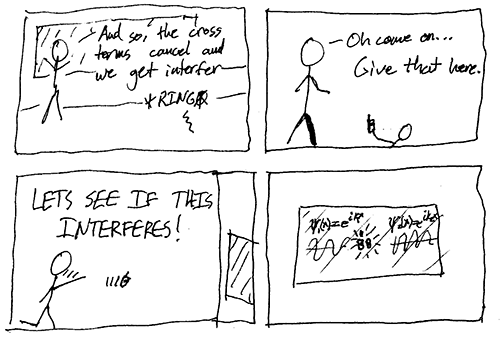 And so, the cross
terms cancel and
we get interfer—
*RING*
Oh come on...
Give that here.
LETS SEE IF THIS
INTERFERES!
Ψ(x)=e^ikx